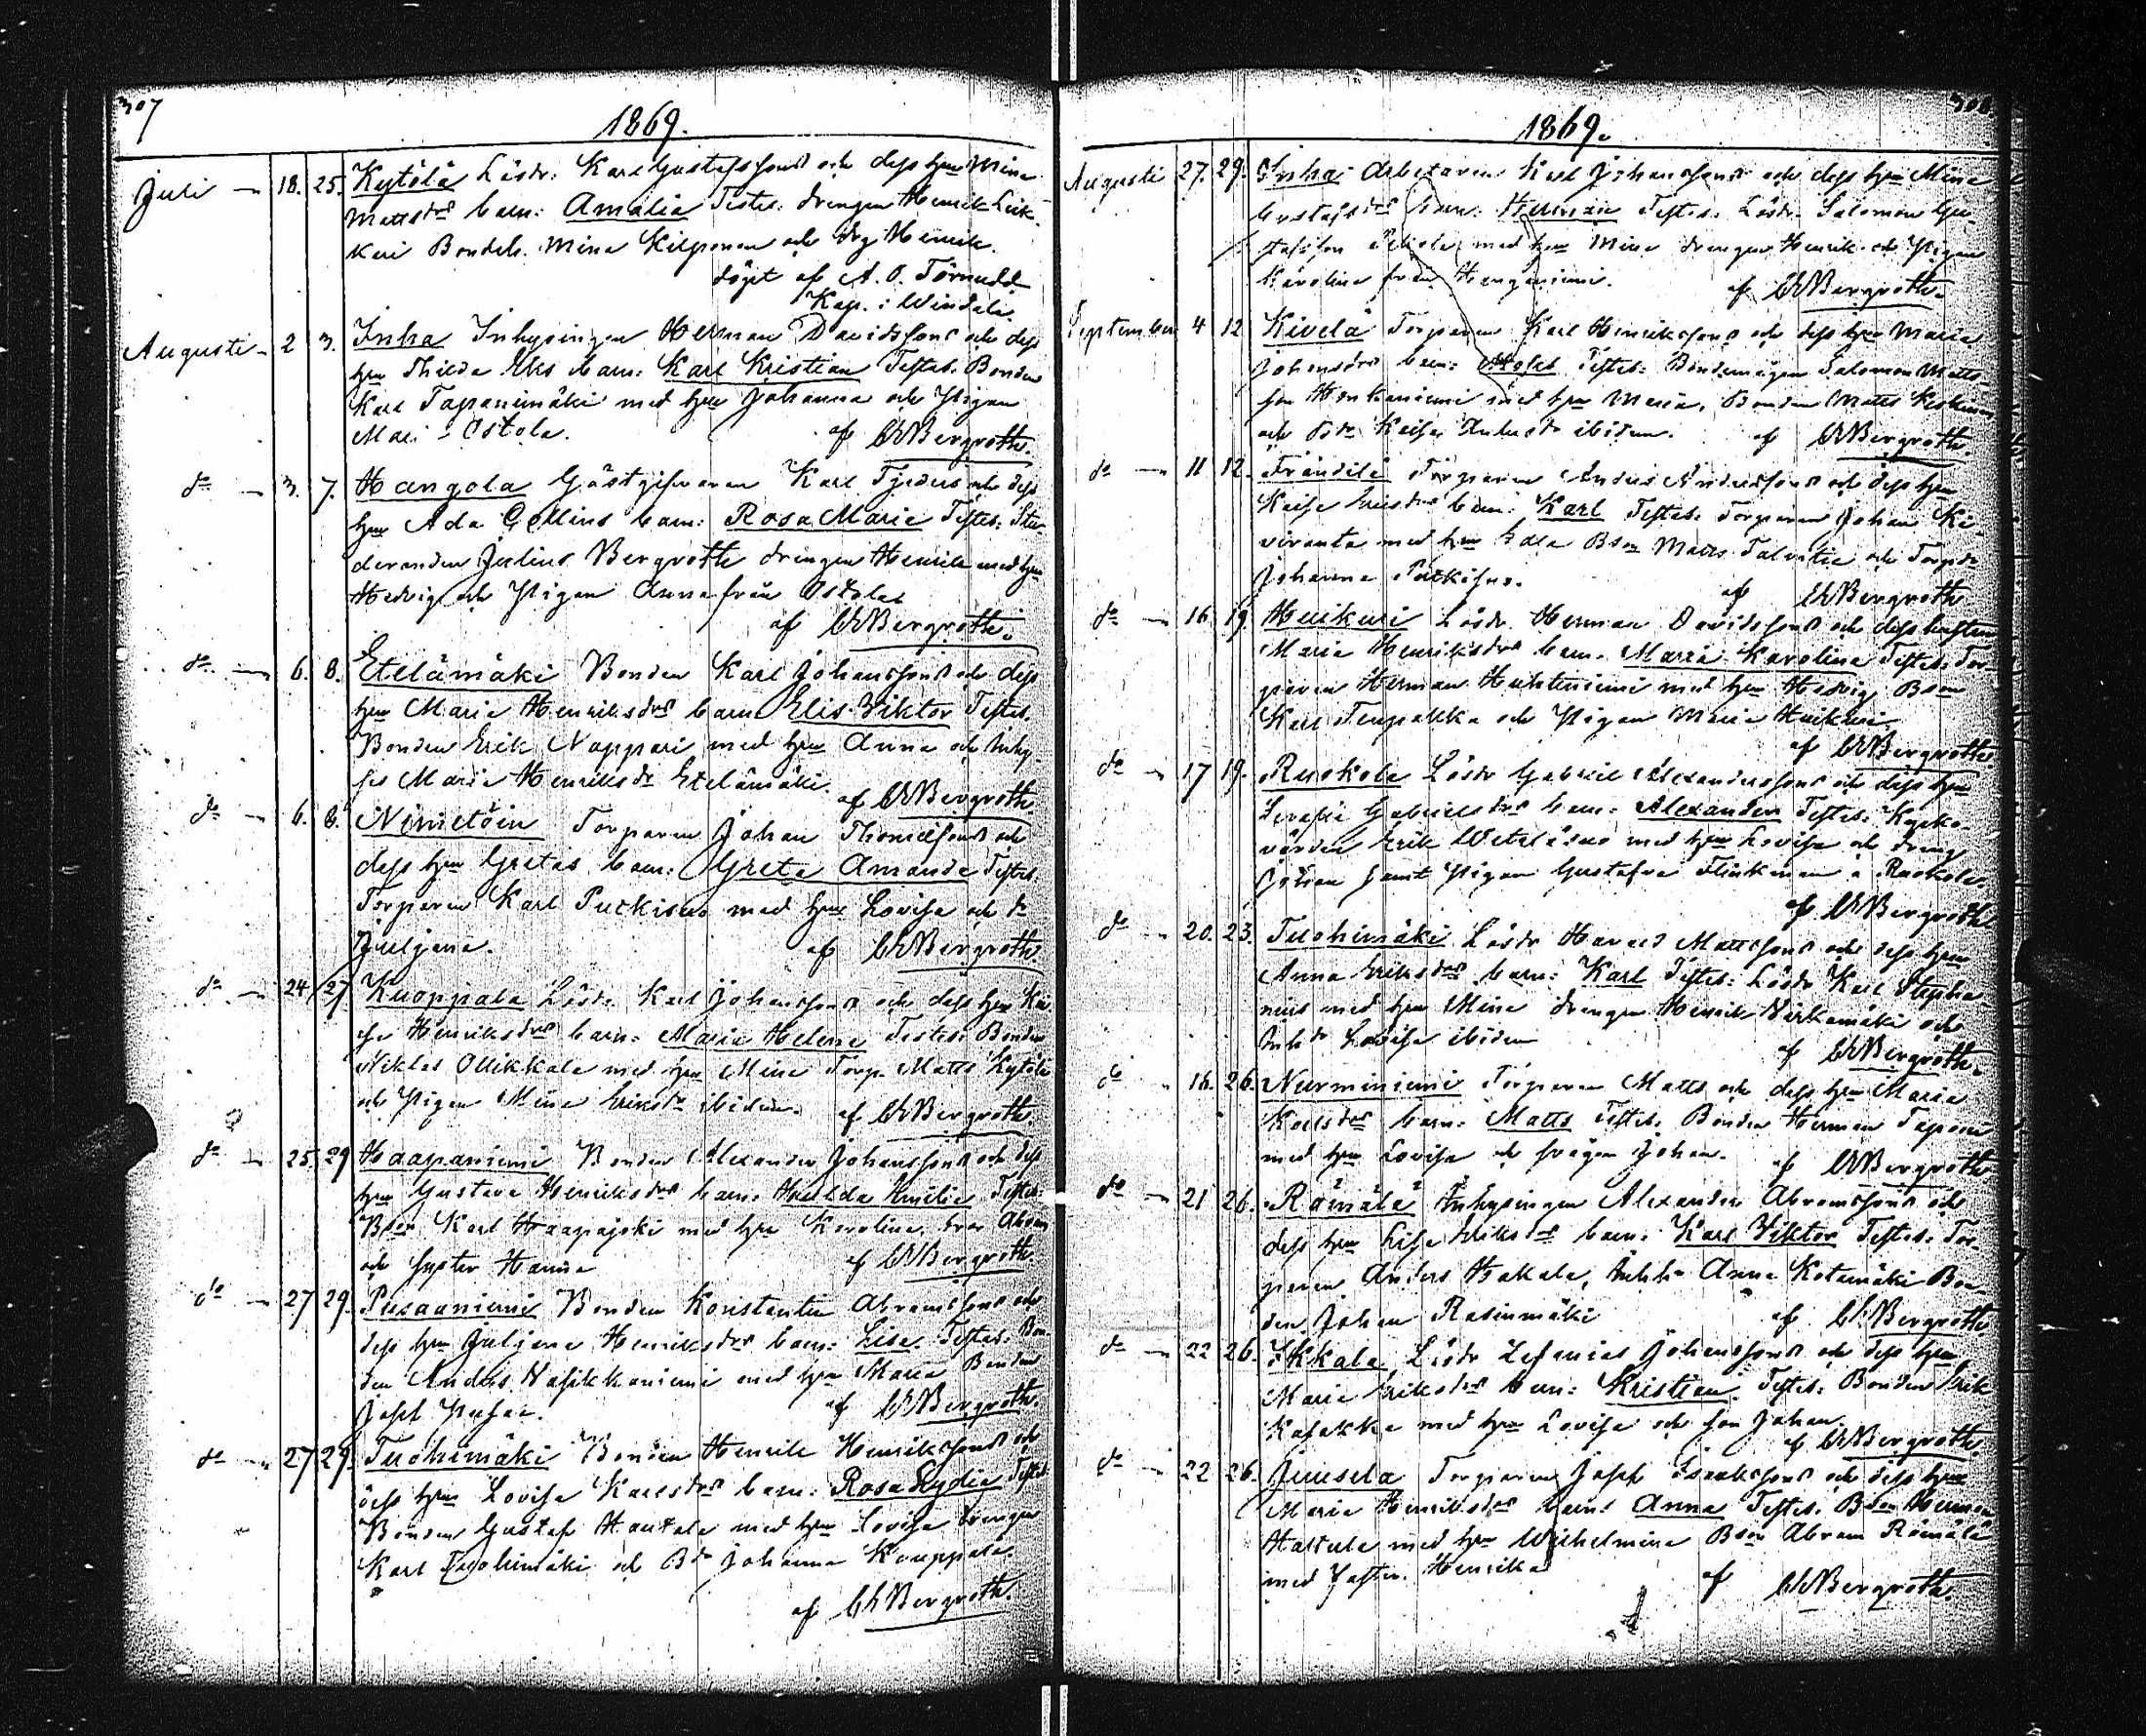 307
1869.
Juli — 18. 25. Kytölä Lösdr. Karl Gustafssons och dess hru Mina
Mattsdrs barn: Amalia Testes: drengen Henrik Leik-
keri Bondeh. Mina Kilponen och drg Henrik.
döpt af A. O. Törnudd
Kap. i Windala.
Augusti — 2 3. Inha Inhysingen Herman Davidssons och dess
hru Thilda Eks barn: Karl Kristian Testes. Bonden
Karl Tapanimäki med hru Johanna och Pigan
Mari Ostola. af ChBergroth.
do — 3. 7. Hangola Gästgifvaren Karl Tjeders och dess
hru Ada barn: Rosa Maria Testes: Stu-
deranden Julius Bergroth drengen Henrik med hru
Hedvig och Pigan Anna från Ostola
af ChBergroth.
do — 6. 8. Etelämäki Bonden Karl Johanssons och dess
hru Maria Henriksdrs barn Elis Viktor Testes.
Bonden Erik Nappari med hru Anna och Inhy
ses Maria Henriksdr Etelämäki. af ChBergroth.
do — 6. 8. Nimetöin Torparen Johan Thomassons och
dess hru Gretas barn: Greta Amanda Testes:
Torparen Karl Putkisao med hru Lovisa och do
Juljana. af ChBergroth.
do — 24 27 Kuoppala Lösdr. Karl Johanssons och dess hru Kai
sa Henriksdrs barn: Maria Helena Testes: Bonden
Niklas Ollikkala med hru Mina Torp. Matts Kytölä
och Pigan Mina Eriksdr ibidem. af ChBergroth.
do — 25. 29 Haapaniemi Bonden Alexander Johanssons och dess
hru Gustava Henriksdrs barn: Hulda Emilia Testes:
Bson Karl Haapajoki med hru Karolina, bror Abram
och syster Hanna af ChBergroth.
do — 27 29. Pusaaniemi Bonden Konstantin Abramssons och
dess hru Juljana Henriksdrs barn: Lisa. Testes: Bon-
den Anders med hru Maria Bonden
Josef af ChBergroth.
do — 27 29. Tuohimäki Bonden Henrik Henrikssons och
dess hru Lovisa Karlsdrs barn: Rosa Lydia Testes
Bonden Gustaf Hautala med hru Lovisa drengen
Karl Tuohimäki och Bdr Johanna Kouppala.
af ChBergroth.
308
1869.
Augusti 27. 29. Inha Arbetaren Karl Johanssons och dess hru Mina
Gustafsdrs barn: Herman Testes: Lösdr. Salomon Gu-
stafsson med hru Mina drengen Henrik och Pigan
Karolina från
af ChBergroth.
September 4 12 Kivelä Torparen Karl Henrikssons och dess hru Maria
Johansdrs barn: Testes: Bondemågen Salomon Matts-
son Honkaniemi med hru Maria, Bonden Matts
och Bdr Kaisa ibidem. af ChBergroth.
do — 11 12. Frändilä Torparen Anders Anderssons och dess hru
Kaisa Eriksdrs barn: Karl Testes: Torparen Johan Ki-
viranta med hru Bson Matts Talvitie och Torpdr
Johanna Putkisao.
af ChBergroth
do — 16. 19. Heikuri Lösdr Herman Davidssons och dess hustru
Maria Henriksdrs barn. Maria Karolina Testes: Tor-
paren Herman Huhtaniemi med hru Hedvig Bson
Karl och Pigan Maria Heikuri
af ChBergroth
do — 17 19. Ruokola Lösdr Gabriel Alexanderssons och dess hru
Serafia Gabrielsdrs barn: Alexander Testes: Kyrko-
värden Erik med hru Lovisa och dreng
Johan samt Pigan Gustafva Flinkman a Ruokola.
af ChBergroth
do — 20. 23. Tuohimäki Lösdr Mattssons och dess hru
Anna Eriksdrs barn: Karl Testes: Lösdr Karl Stepha
nius med hru Mina drengen Henrik och
Inhdr Lovisa ibidem
af ChBergroth.
do 16. 26. Nurminiemi Torparen Matts och dess hru Maria
Karlsdrs barn: Matts Testes: Bonden Herman Taponen
med hru Lovisa och svågen Johan. af ChBergroth
do — 21 26. Römälä Inhysingen Alexander Abramssons och
dess hru Lisa Eriksdrs barn: Karl Viktor Testes: Tor-
paren Anders Hakala, Anna Kotamäki Bon-
den Johan Rasinmäki af ChBergroth
do — 22 26. Ikkala Lösdr Zefanias Johanssons och dess hru
Maria Eriksdrs barn: Kristian. Testes: Bonden Erik
Kasakka med hru Lovisa och son Johan.
af ChBergroth
do — 22 26. Jumela Torparen Josef Isakssons och dess hru
Maria Henriksdrs barn: Anna Testes: Bson Herman
med hru Wilhelmina Bson Abram Römälä
med faster Henrika af ChBergroth.